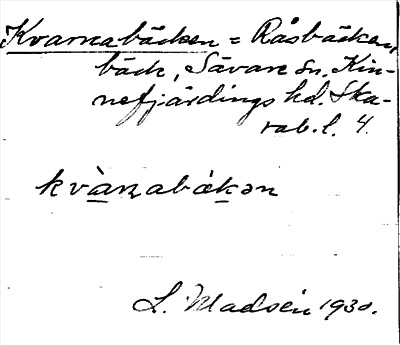 Kvarnabäcken = Råsbäcken,
bäck, Sävare sn. Kin-
nefjärdings hd. Ska-
rab. l. 4.
kvànabäkən
L. Madsén 1930.